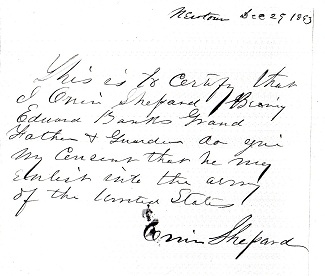 Newtown Dec 29 1863
This is to Certify that
I Orrin Shepard Being
Edward Banks Grand
Father & Guardien do give
my Consent that he may
Enlist into the army
of the United States
Orrin Shepard